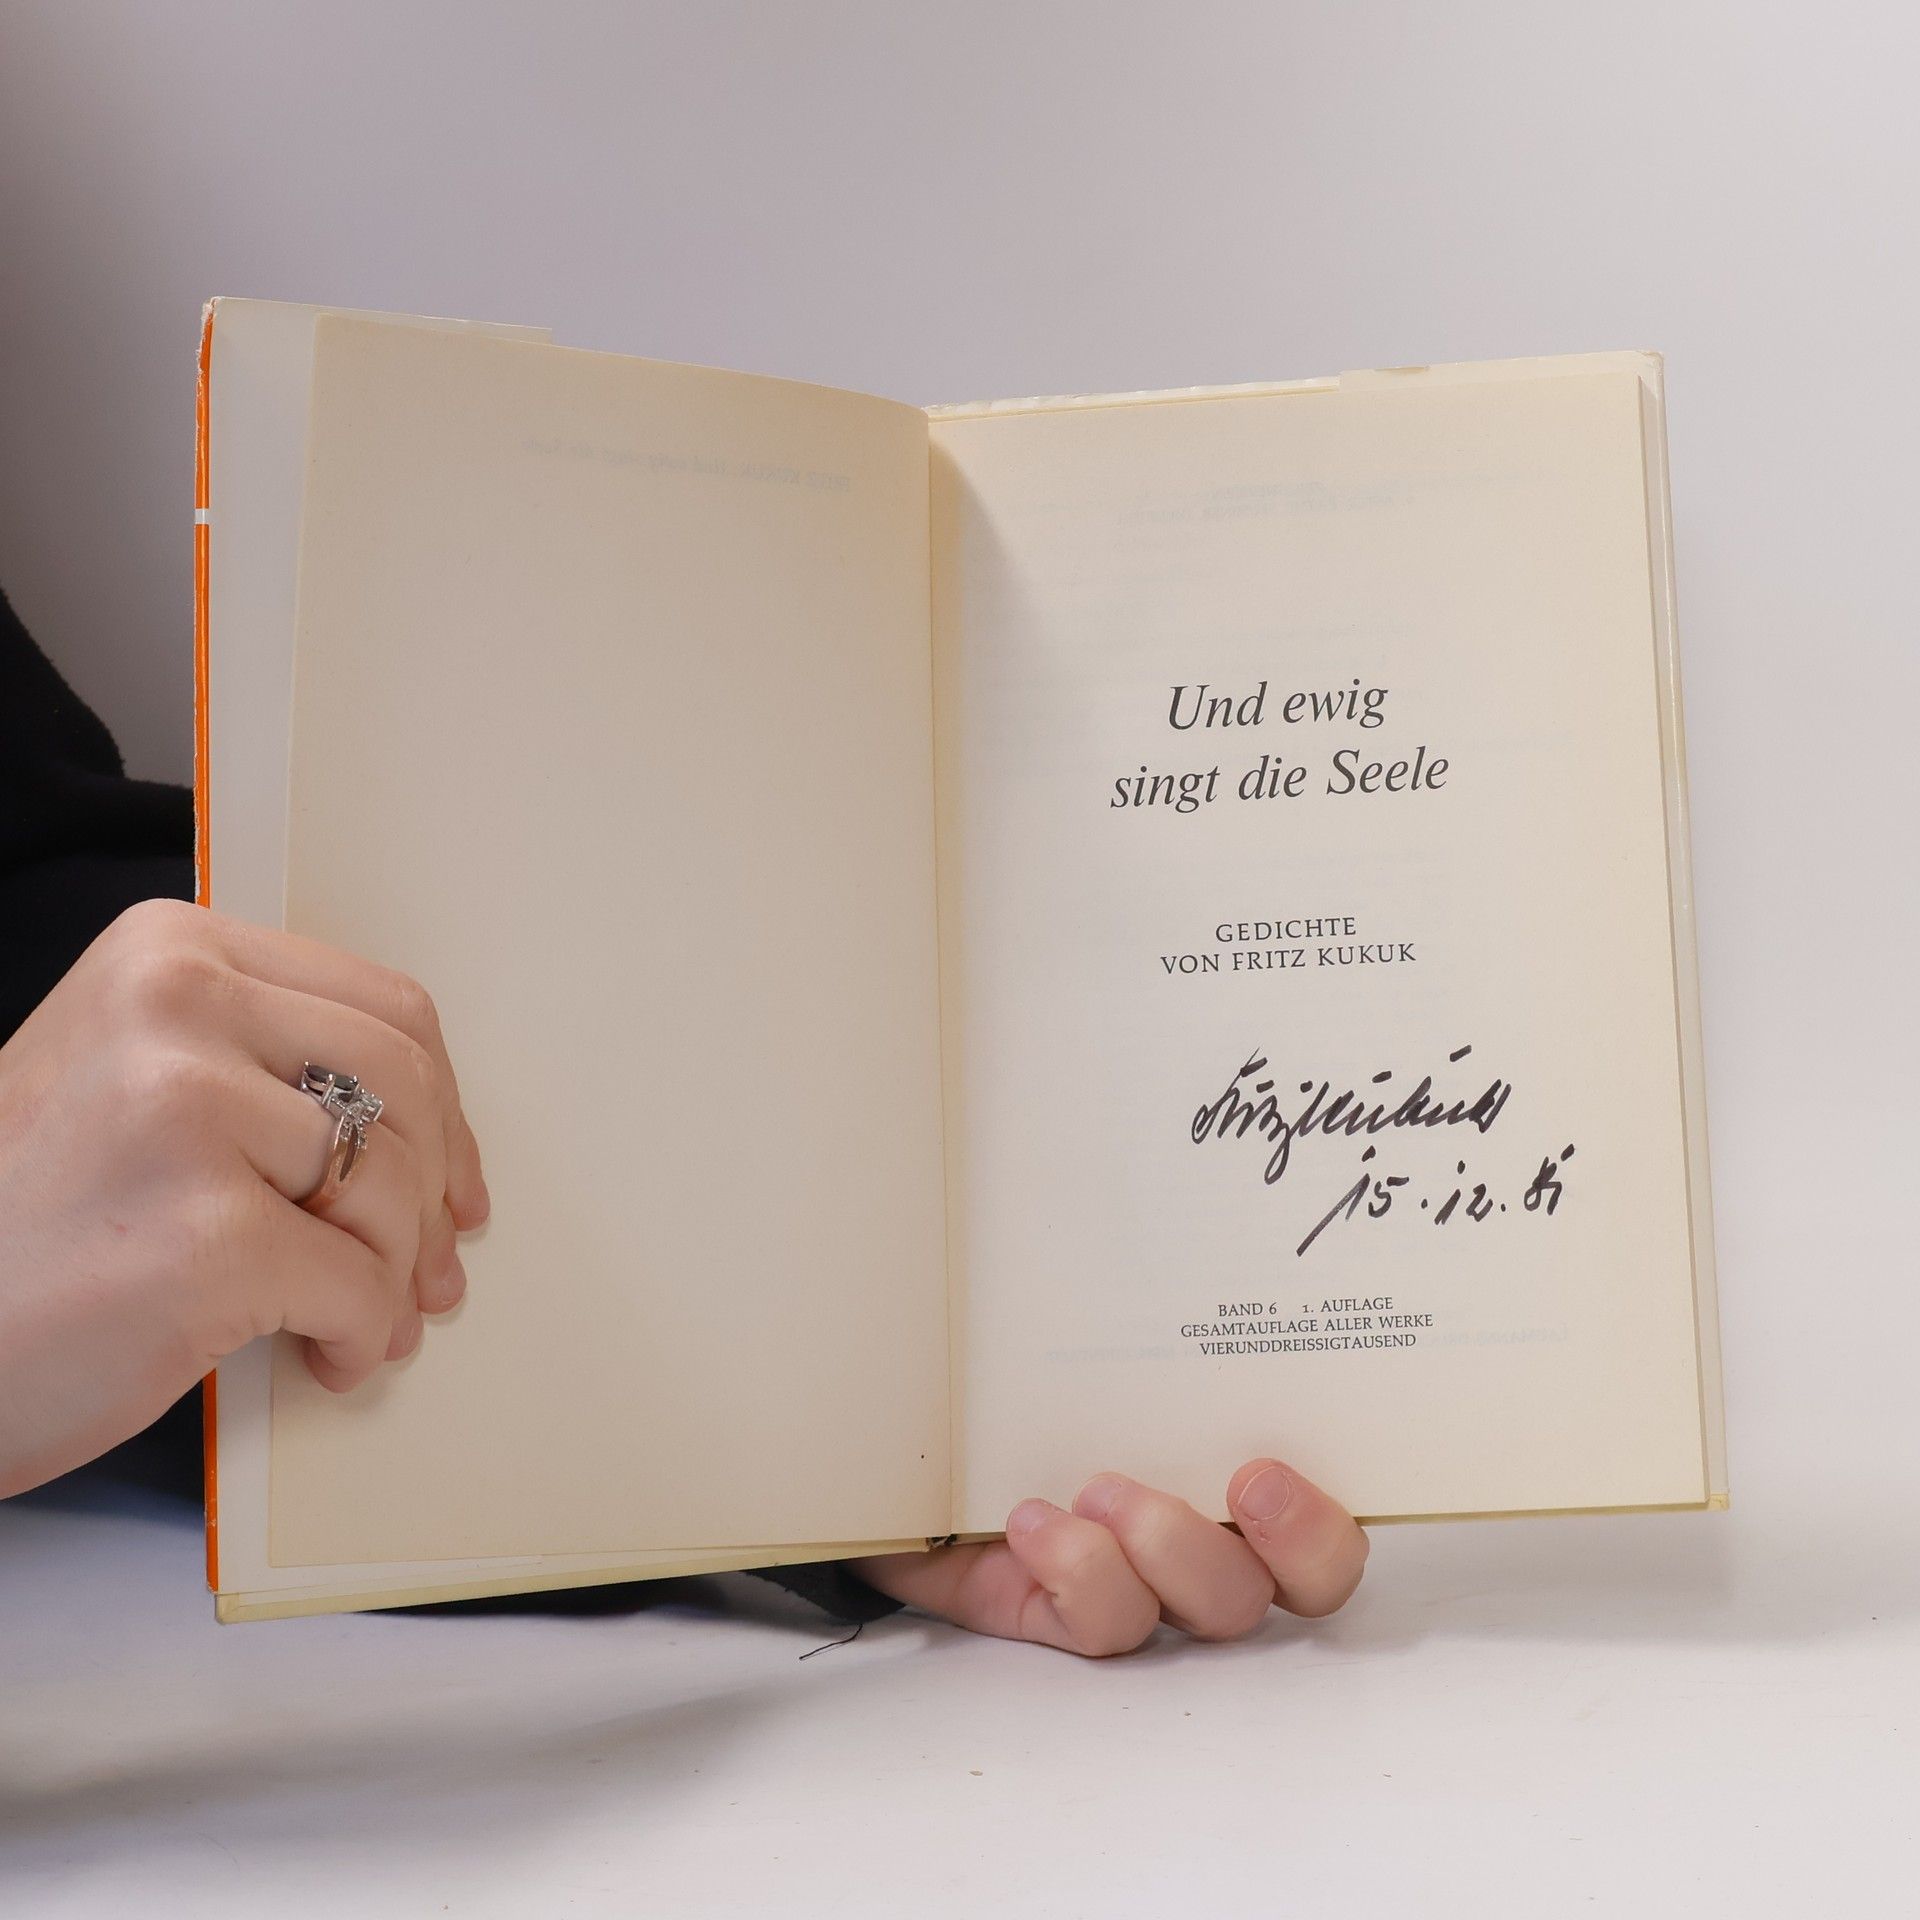 Und ewig
singt die Seele
GEDICHTE
VON FRITZ KUKUK
Fritz Kukuk
15.12.81
BAND 6 1. AUFLAGE
GESAMTAUFLAGE ALLER WERKE
VIERUNDDREISSIGTAUSEND